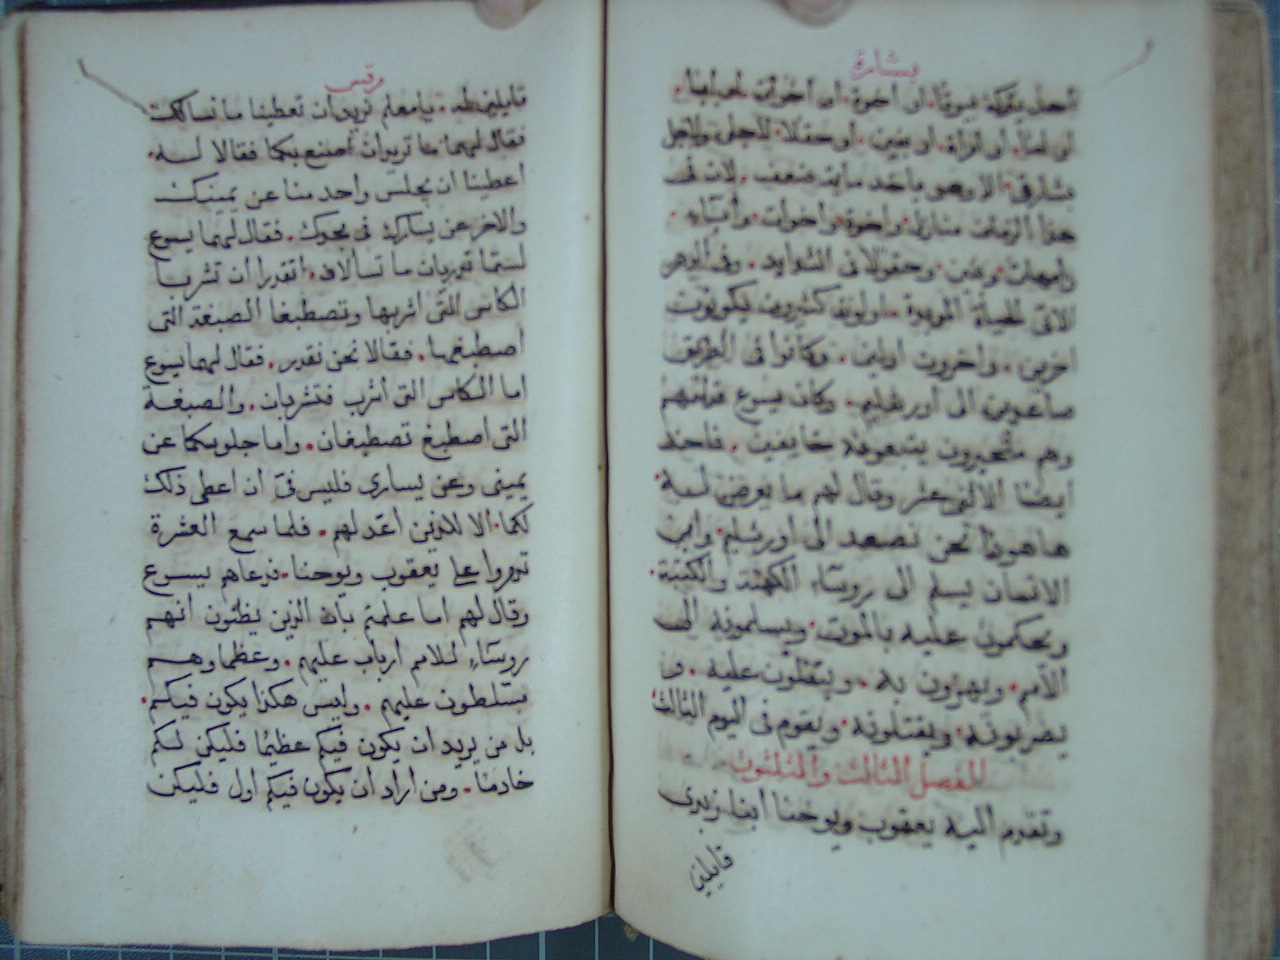 بشارة
احد يترك بيوتا. او اخوة. او اخوات. او ابا.
او اما. او امراة. او بنين. او حقلا. لاجلى ولاجل
بشارتى. الا وهو ياخد ماية ضعف. لان فى
هدا الزمان منازل. واخوة. واخوات. واباء.
وامهات. وبنين. وحقولا فى الشدايد. وفى الدهر
الاتى الحياة الموبدة. اولون كثيرون يكونون
اخرين. واخرون اولين. وكانوا فى الطريق
صاعدين الى اورشليم. وكان يسوع قدامهم
وهم متحيرون يتبعونه خايفين. فاخد
ايضا الاثنى عشر وقال لهم ما يعرض لـه.
هاهودا نحن نصعد الى اورشليم. وابن
الانسان يسلم الى روساء الكهنة والكتبة.
ويحكمون عليه بالموت. ويسلمونه الى
الامم. ويهزون به. ويتفلون عليه. و
يضربونه. ويقتلونه. ويقوم فى اليوم الثالث.
الفصل الثالث والثلثون
وتقدم اليه يعقوب ويوحنا ابنا زبدى
قايلين
مرقس
قايلين له. يا معلم نريد ان تعطينا ما نسالك.
فقال لهما ما تريدان اصنع بكما فقالا لـه.
اعطينا ان يجلس واحد منا عن يمينك
والاخر عن يسارك فى مجدك. فقال لهما يسوع
لستما تدريان ما تسالان. اتقدرا ان تشربا
الكاس التى اشربها وتصطبغا الصبغة التى
اصطبغها. فقالا نحن نقدر. فقال لهما يسوع
اما الكاس التى اشرب فتشربان. والصبغة
التى اصطبغ تصطبغان. واما جلوسكما عن
يمينى وعن يسارى فليس لى ان اعطى ذلك
لكما. الا للذين اعد لهم. فلما سمع العشرة
تدمروا على يعقوب ويوحنا. فدعاهم يسوع
وقال لهم اما علمتم بان الذين يظنون انهم
روساء للامم ارباب عليهم. وعظماوهم
يتسلطون عليهم. وليس هكذا يكون فيكم.
بل من يريد ان يكون فيكم عظيما فليكن لكم
خادما. ومن اراد ان يكون فيكم اول فليكن